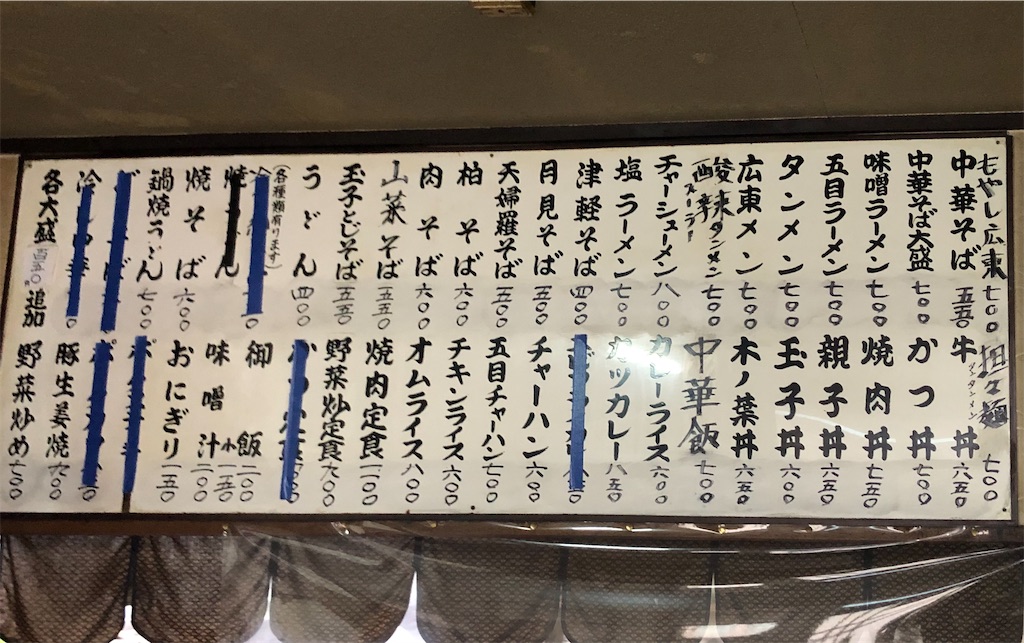 もやし広東 七〇〇
中華そば 五五〇
中華そば大盛 七〇〇
味噌ラーメン 七〇〇
五目ラーメン 七〇〇
タンメン 七〇〇
広東メン 七〇〇
酸辣タンメン 七〇〇
スーラー
チャーシューメン 八〇〇
塩ラーメン 七〇〇
津軽そば 四〇〇
月見そば 五〇〇
天婦羅そば 五五〇
柏そば 六〇〇
肉そば 六〇〇
山菜そば 五五〇
玉子とじそば 五五〇
うどん 四〇〇
(各種類有ります)
焼そば 六〇〇
鍋焼うどん 七〇〇
各大盛 百五〇円 追加
担々麺 七〇〇
タンタンメン
牛丼 六五〇
かつ丼 七〇〇
焼肉丼 七五〇
親子丼 六五〇
玉子丼 六〇〇
木ノ葉丼 六五〇
中華飯 七〇〇
カレーライス 六〇〇
カツカレー 八五〇
チャーハン 六〇〇
五目チャーハン 七〇〇
チキンライス 六〇〇
オムライス 八〇〇
焼肉定食
野菜炒定食 九〇〇
御飯 二〇〇
小 一五〇
味噌汁 二〇〇
おにぎり 一五〇
豚生姜焼
野菜炒め 七〇〇